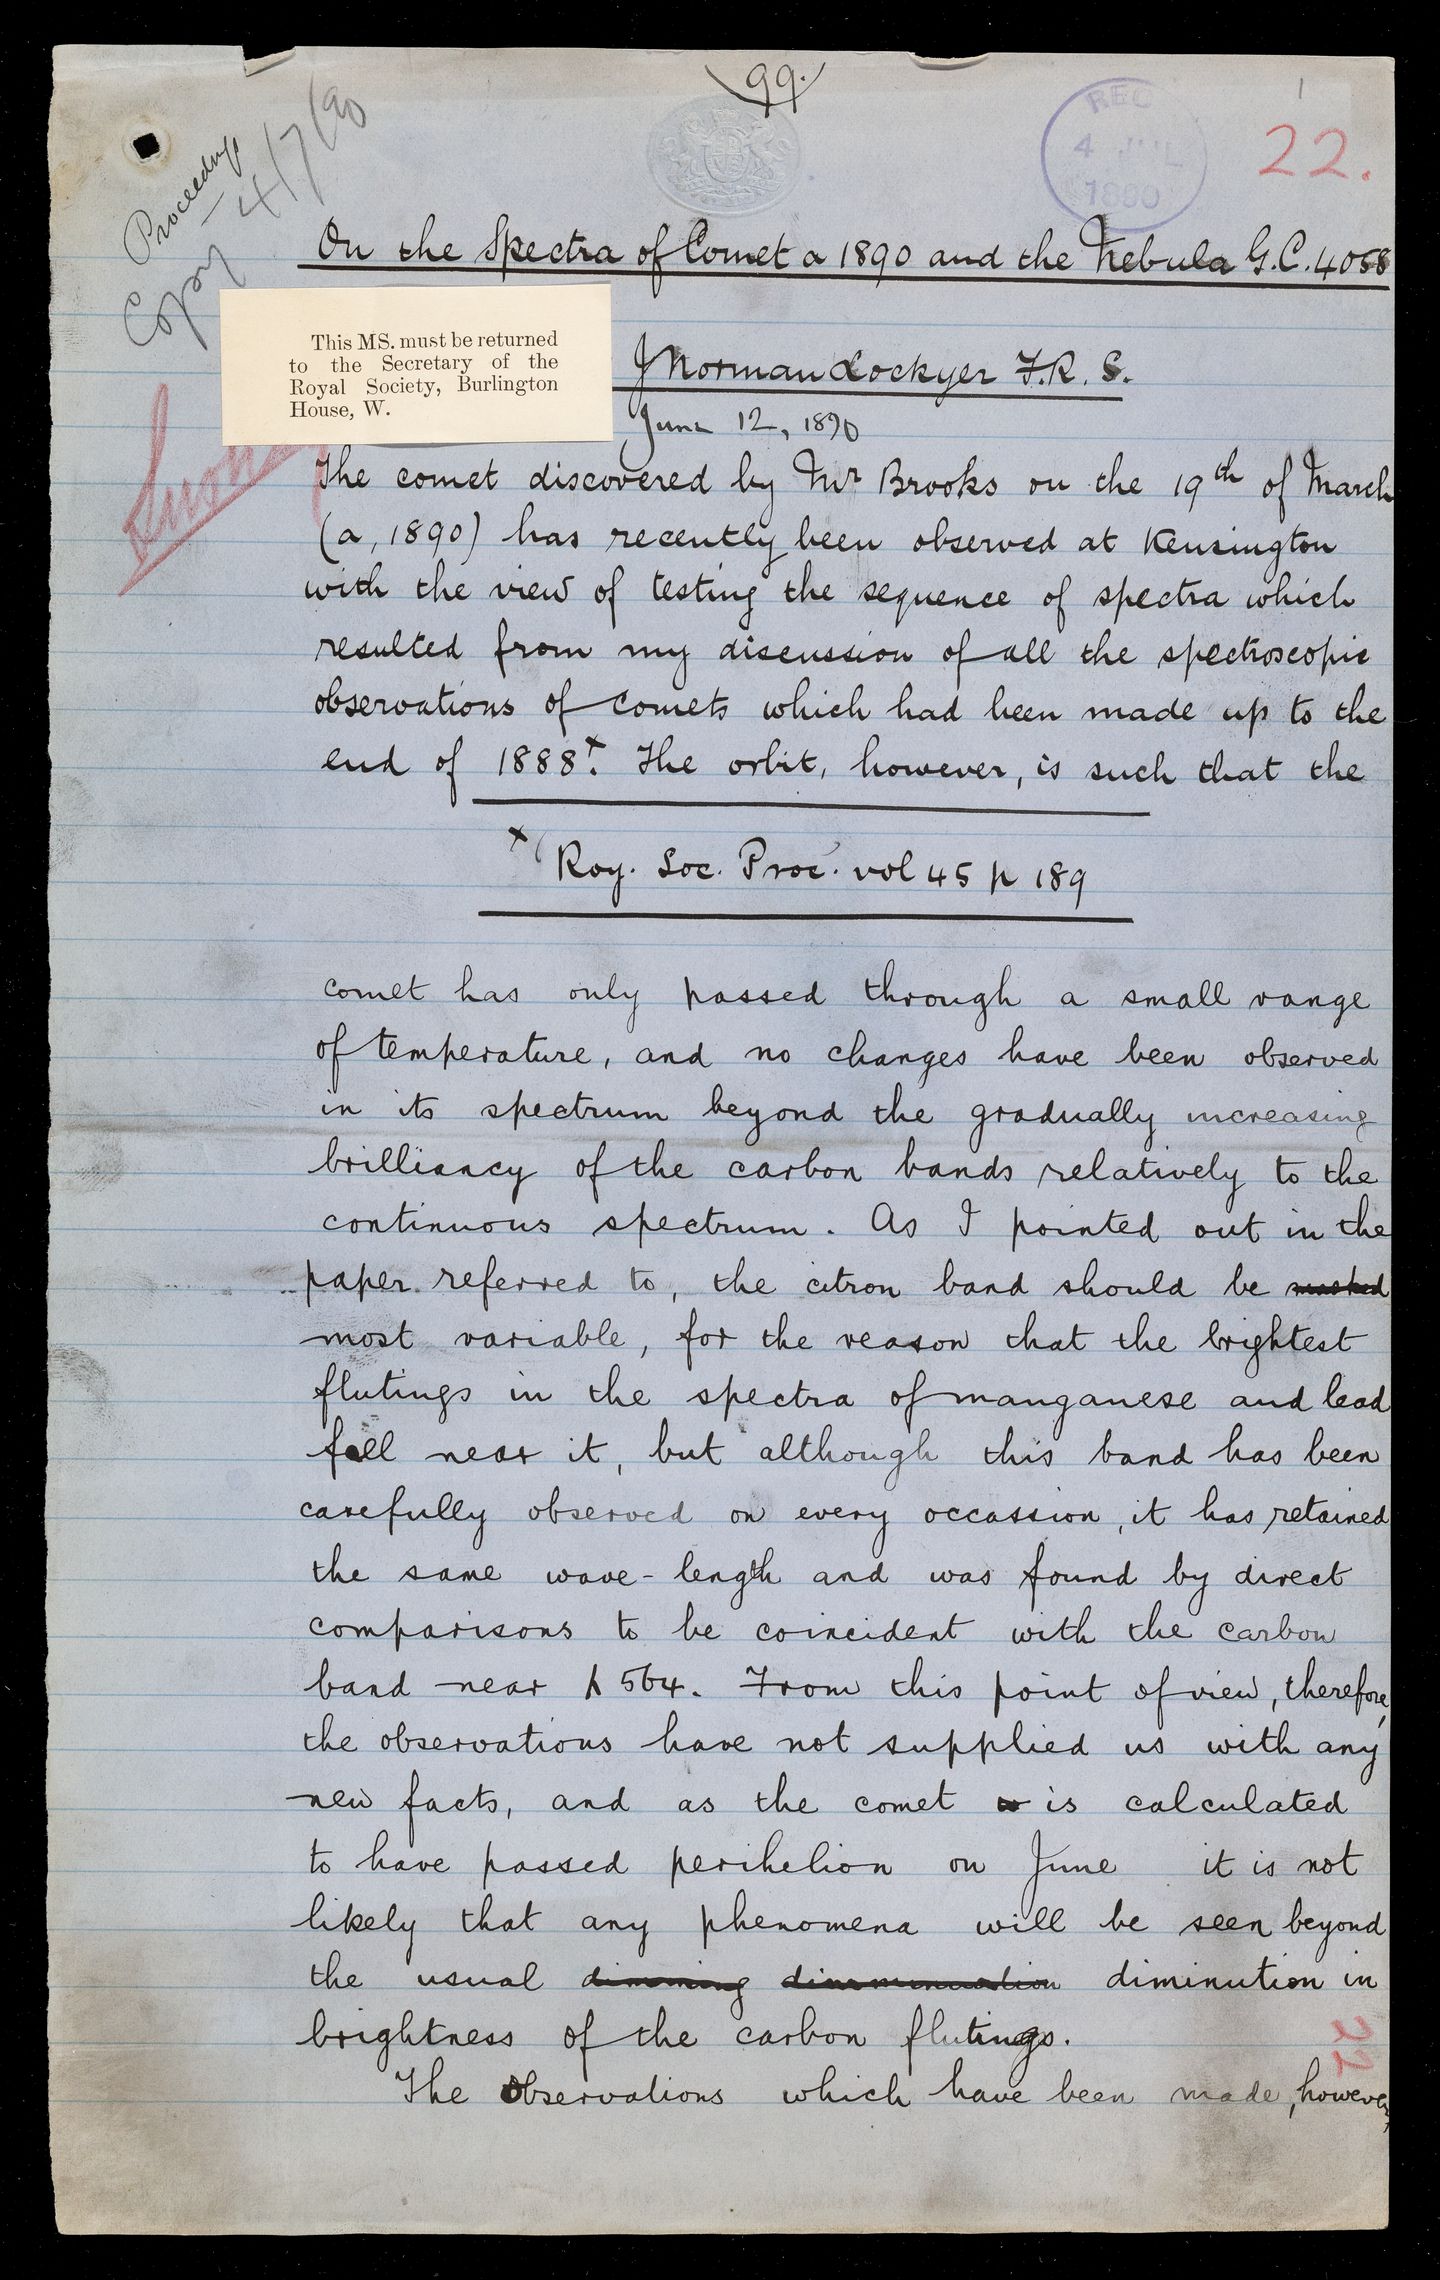 99.
1
REC
4 JUL
1890
22.
Proceedings
Copy 4/7/90
On the Spectra of Comet a 1890 and the Nebula G.C. 4058
This MS. must be returned
to the Secretary of the
Royal Society, Burlington
House, W.
J Norman Lockyer F.R.S.
June 12, 1890
The comet discovered by Mr Brooks on the 19th of March
(a, 1890) has recently been observed at Kensington
with the view of testing the sequence of spectra which
resulted from my discussion of all the spectroscopic
observations of comets which had been made up to the
end of 1888x. The orbit, however, is such that the
x Roy. Soc. Proc. vol 45 p 189
comet has only passed through a small range
of temperature, and no changes have been observed
in its spectrum beyond the gradually increasing
brilliancy of the carbon bands relatively to the
continuous spectrum. As I pointed out in the
paper referred to, the citron band should be masked
most variable, for the reason that the brightest
flutings in the spectra of manganese and lead
fall near it, but although this band has been
carefully observed on every occassion, it has retained
the same wave-length and was found by direct
comparisons to be coincident with the carbon
band near λ 564. From this point of view, therefore,
the observations have not supplied us with any
new facts, and as the comet is calculated
to have passed perihelion on June it is not
likely that any phenomena will be seen beyond
the usual dimming dimmenuation diminution in
brightness of the carbon flutings.
The Observations which have been made, however,
22